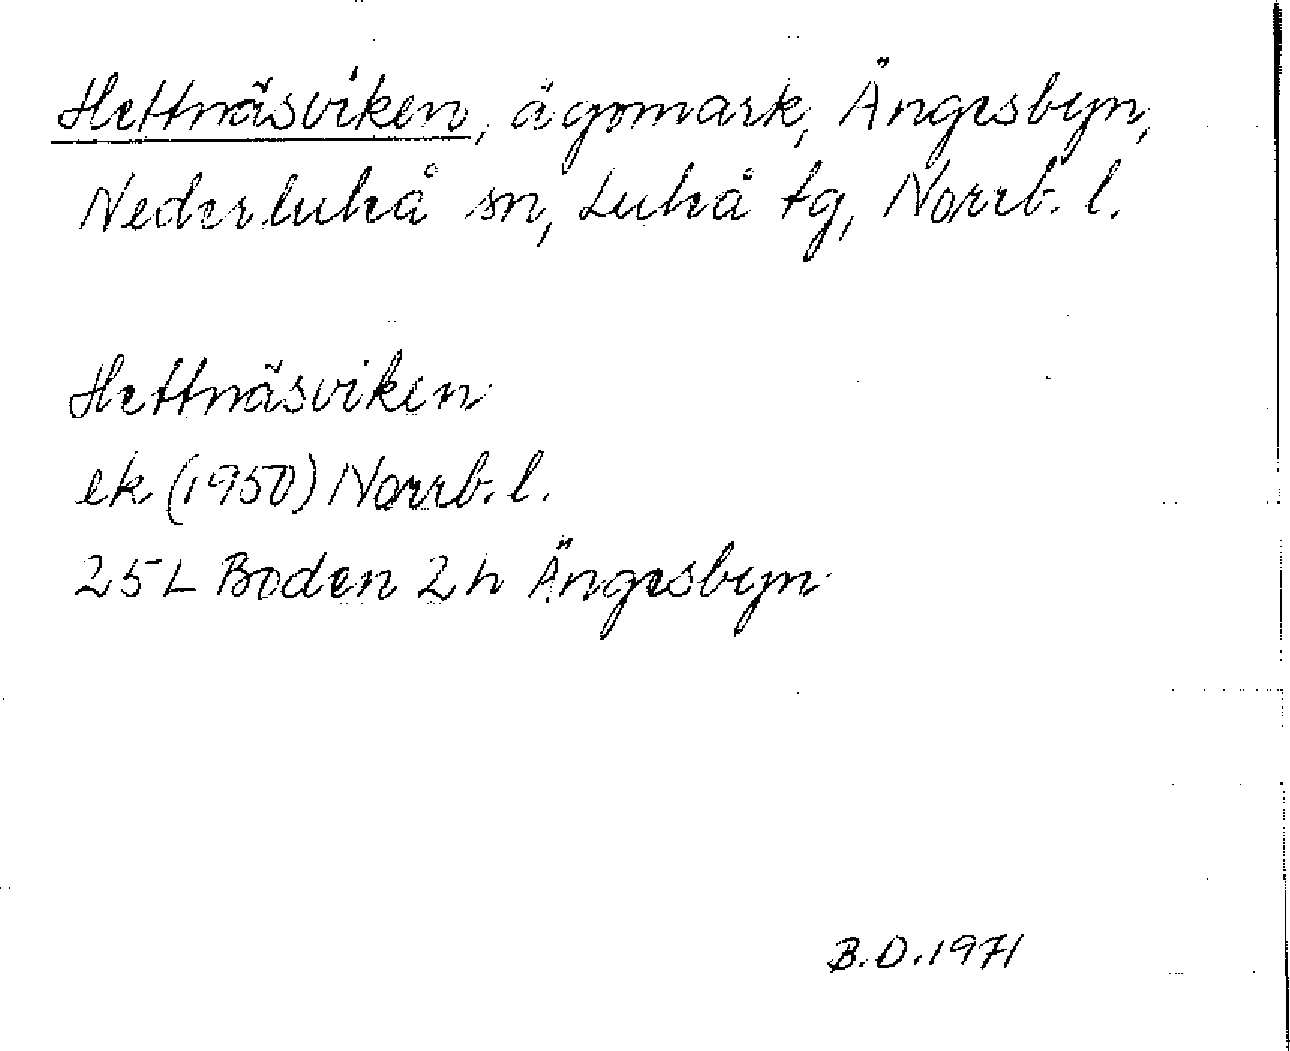 Hettnäsviken, ägomark, Ängesbyn,
Nederluleå sn, Luleå tg, Norrb. l.
Hettnäsviken
ek (1950) Norrb. l.
25L Boden 2h Ängesbyn
B.D.1971